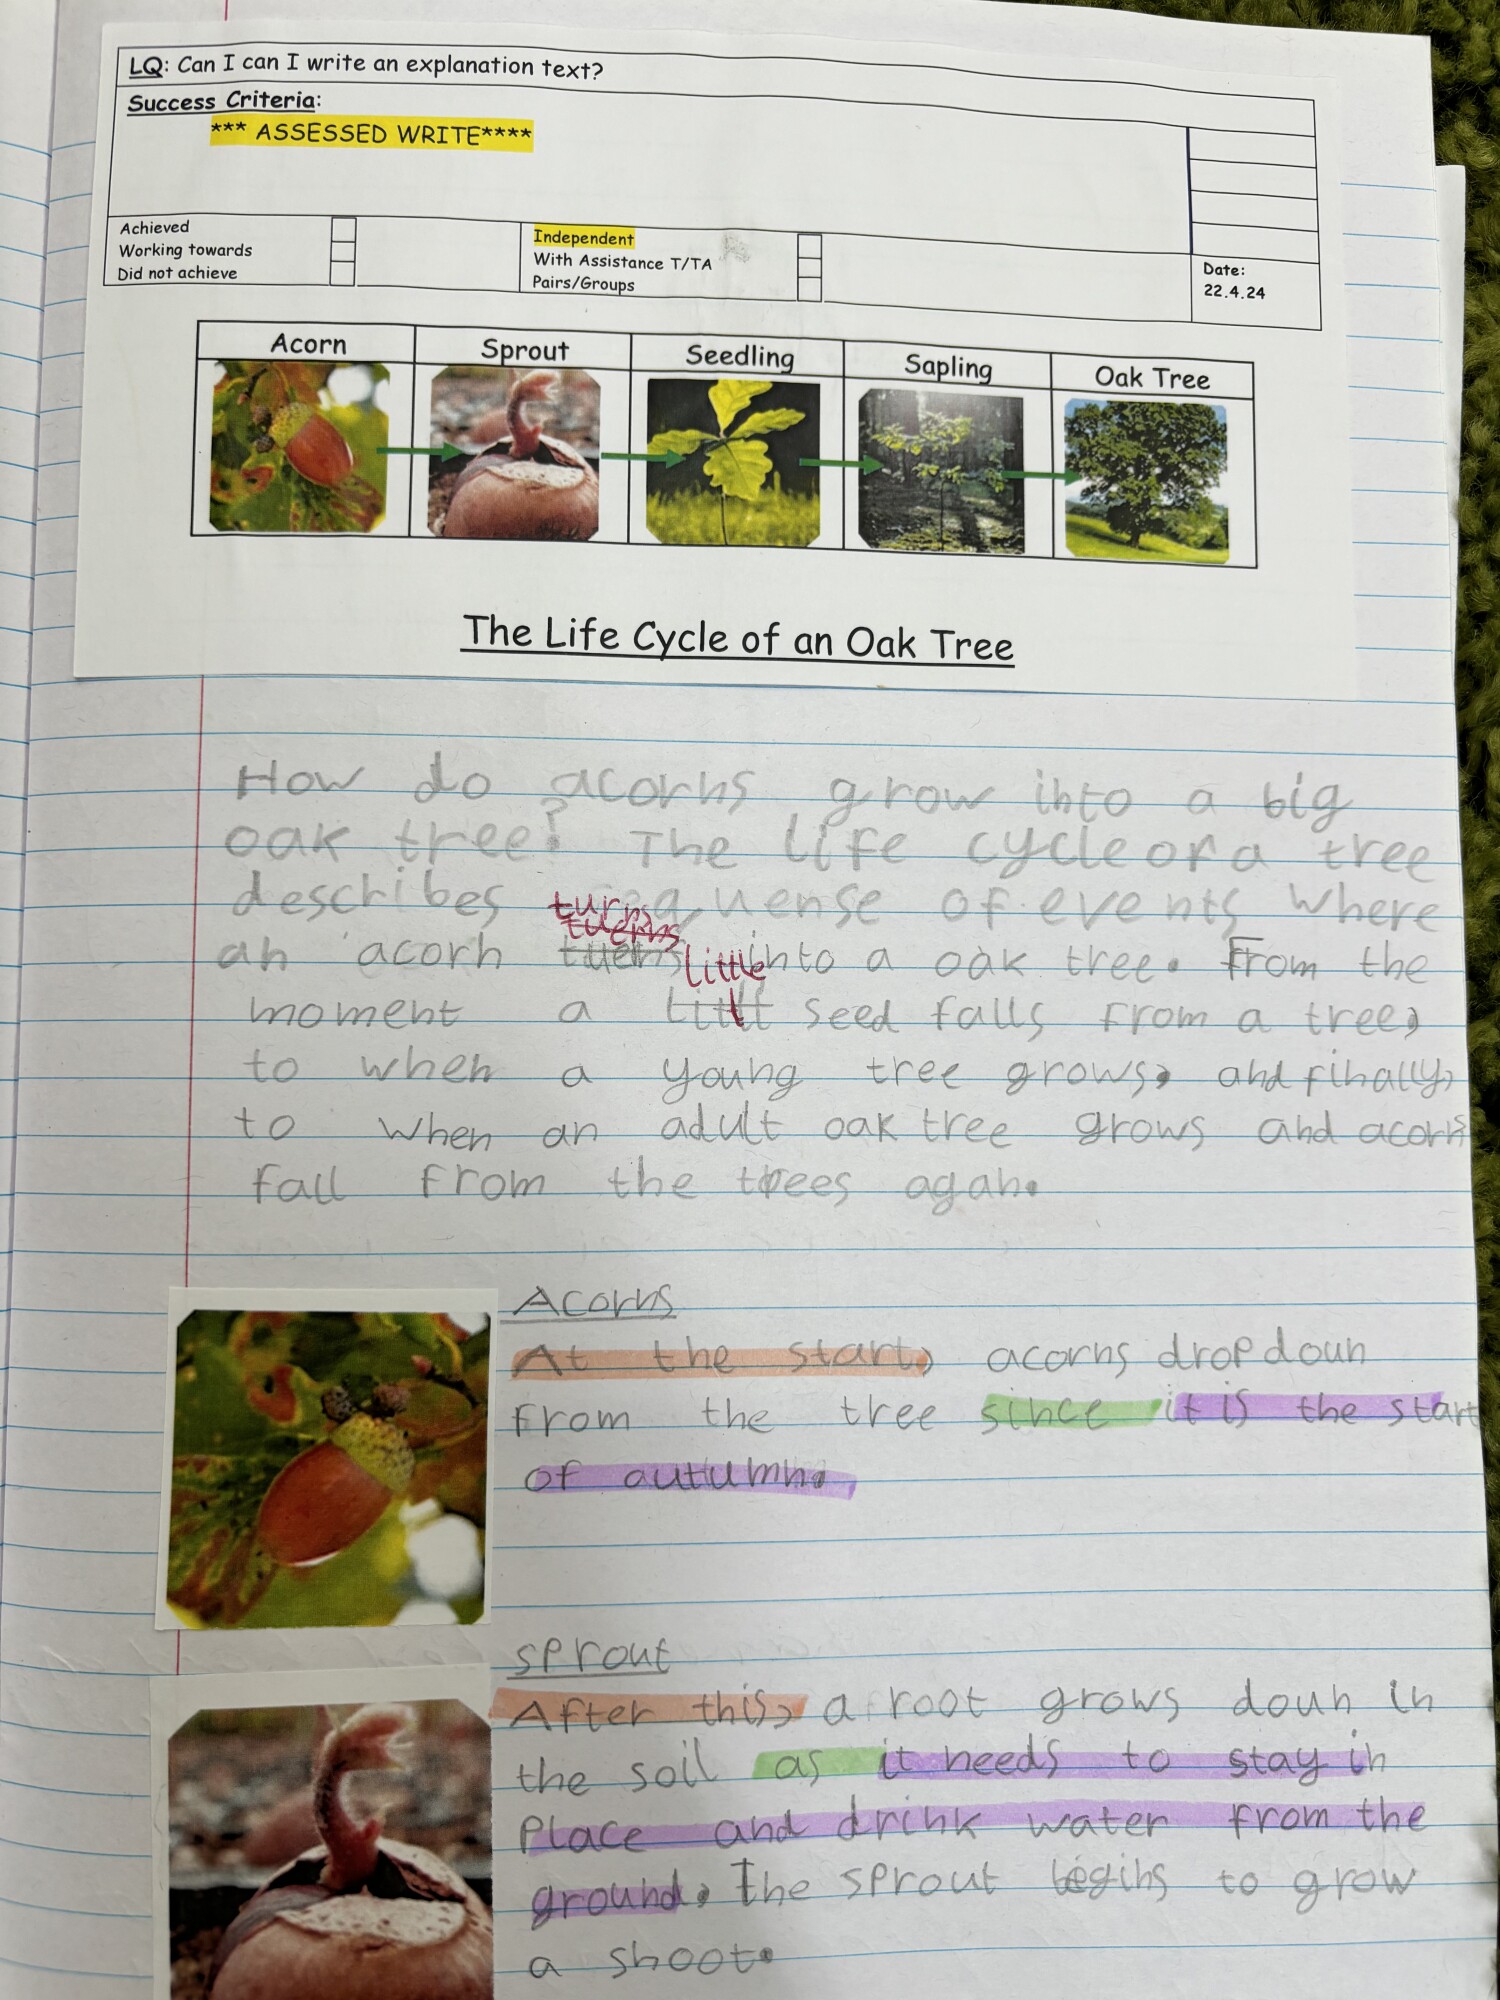 LQ: Can I can I write an explanation text?
Success Criteria:
*** ASSESSED WRITE****
Achieved
Working towards
Did not achieve
Independent
With Assistance T/TA
Pairs/Groups
Date:
22.4.24
Acorn Sprout Seedling Sapling Oak Tree
The Life Cycle of an Oak Tree
How do acorns grow into a big
oak tree? The life cycle of a tree
turns
describes sequense of events where
tuerns
an acorn tuerns into a oak tree. From the
little
moment a seed falls from a tree,
to when a young tree grows, and finally,
to when an adult oak tree grows and acorns
fall from the trees agan.
Acorns
At the start, acorns drop doun
from the tree since it is the start
of autumn.
Sprout
After this, a root grows doun in
the soil as it needs to stay in
place and drink water from the
ground. The sprout begins to grow
a shoot.